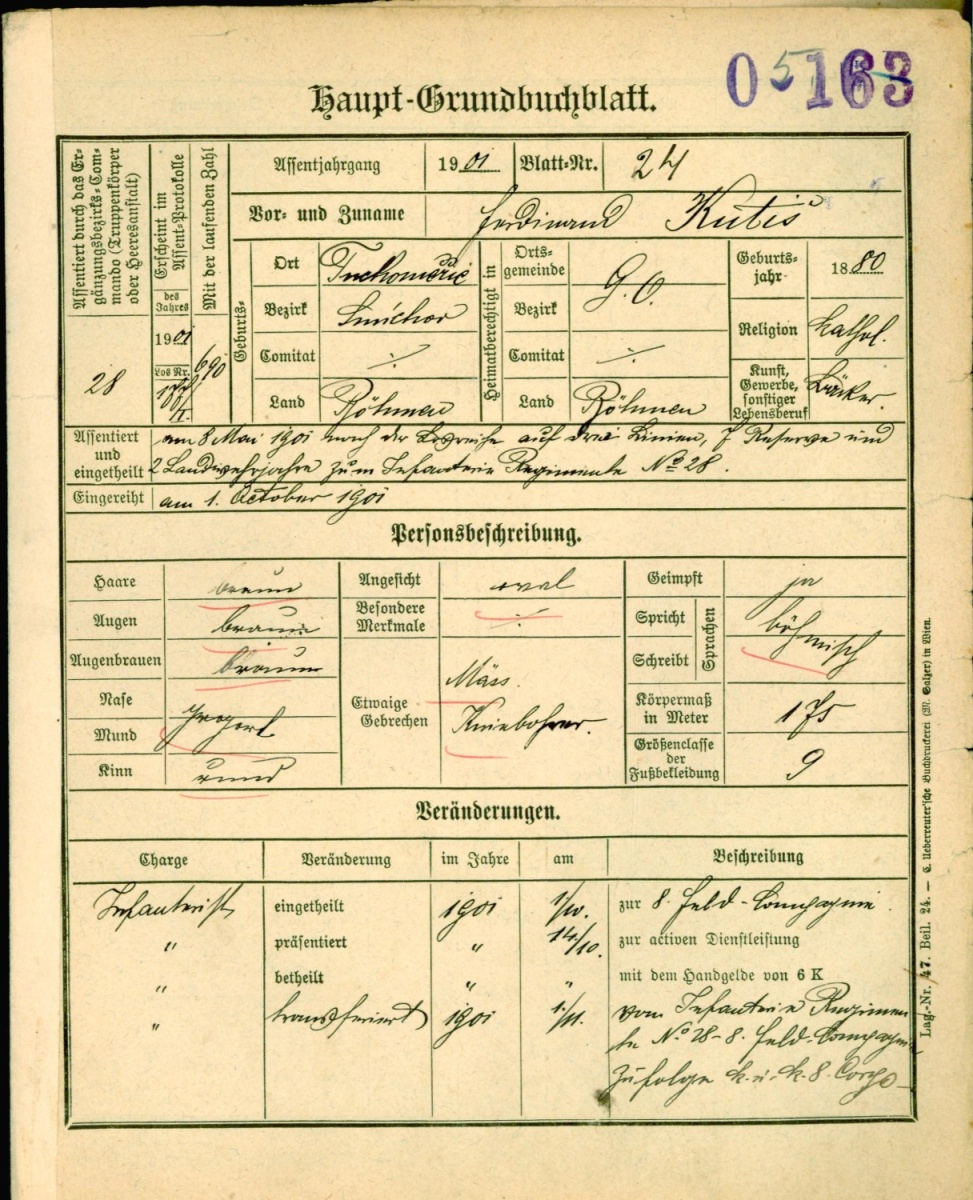 05163
Haupt-Grundbuchblatt.
Assentiert durch das Er-
gänzungsbezirks-Com-
mando (Truppenkörper
oder Heeresanstalt)
28
Erscheint im
Assent-Protokolle
des
Jahres
1901
Los Nr.
Mit der laufenden Zahl
690
Assentjahrgang 1901 Blatt-Nr. 24
Vor- und Zuname Ferdinand Kutiš
Geburts-
Ort Tuchoměřic
Bezirk Smichov
Comitat ·/·
Land Böhmen
Heimatberechtigt in
Orts-
gemeinde
Bezirk
G. O.
Comitat ·/·
Land Böhmen
Geburts-
jahr 1880
Religion kathol.
Kunst,
Gewerbe,
sonstiger
Lebensberuf Bäcker.
Assentiert
und
eingetheilt
am 8 Mai 1901 nach der Losreihe auf drei Linien, 7 Reserve und
2 Landwehrjahre zum Infanterie Regimente No 28.
Eingereiht am 1. October 1901
Personsbeschreibung.
Haare braun
Augen braun
Augenbrauen braun
Nase
Mund
proport
Kinn rund
Angesicht oval
Besondere
Merkmale ·/·
Etwaige
Gebrechen
Mäss.
Kniebohrer.
Geimpft ja
Spricht
Schreibt
Sprachen
böhmisch
Körpermaß
in Meter 175
Größenclasse
der
Fußbekleidung 9
Veränderungen.
Charge Veränderung im Jahre am Beschreibung
Infanterist eingetheilt 1901 1/10. zur 8. Feld-Compagnie
" präsentiert " 14/10. zur activen Dienstleistung
" betheilt " " mit dem Handgelde von 6 K
" transferiert 1901 1/11. vom Infanterie Regimen
te No 28-8. Feld-Compagnie
zufolge k. u. k. 8. Corps-
Lag.-Nr. 47. Beil. 24. — C. Ueberreuter'sche Buchdruckerei (M. Salzer) in Wien.